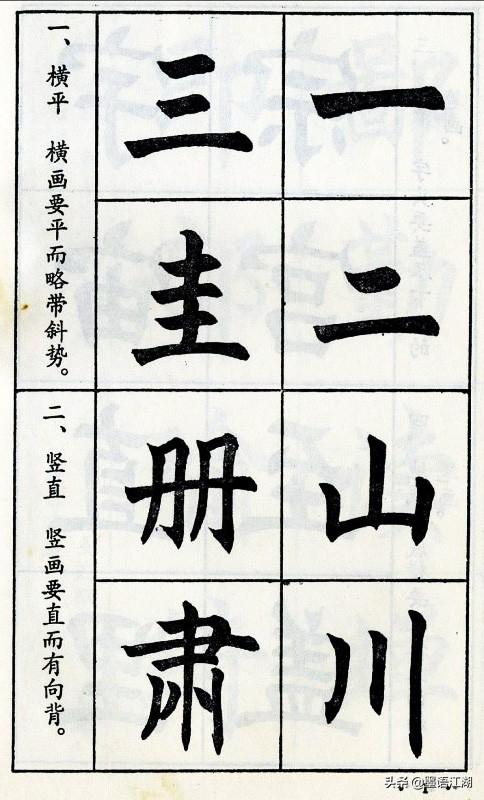 一、横平 横画要平而略带斜势。
一
二
三
圭
二、竖直 竖画要直而有向背。
山
川
册
肃
1
头条 @墨语江湖